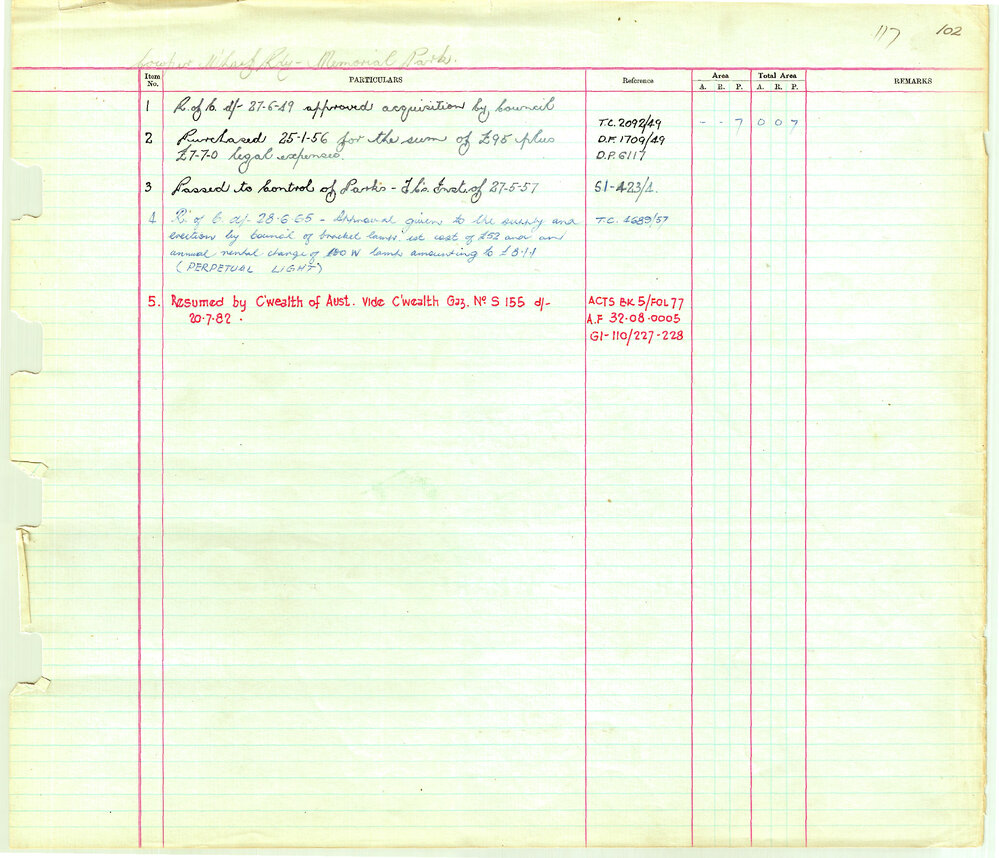 117 102
Cowper Wharf Rdy - Memorial Parks.
Item No. PARTICULARS Reference Area Total Area REMARKS
A. R. P. A. R. P.
1 R. of C. d/- 27-6-49 approved acquisition by Council
T.C. 2092/49 - - 7 0 0 7
2 Purchased 25-1-56 for the sum of £95 plus D.F. 1709/49
£7-7-0 legal expenses. D.P. 6117
3 Passed to Control of Parks - T.C's. Inst. of 27-5-57 S1-423/1.
4 R. of C. d/- 28-6-65 - Approval given to the supply and T.C. 4689/57
erection by Council of bracket lamps, est cost of £52 and an
annual rental charge of 100 W lamp amounting to £8-11
(PERPETUAL LIGHT)
5. Resumed by C'wealth of Aust. Vide C'wealth Gaz. No S 155 d/- ACTS BK 5/FOL 77
20.7.82. A.F 32.08.0005
G1-110/227-228